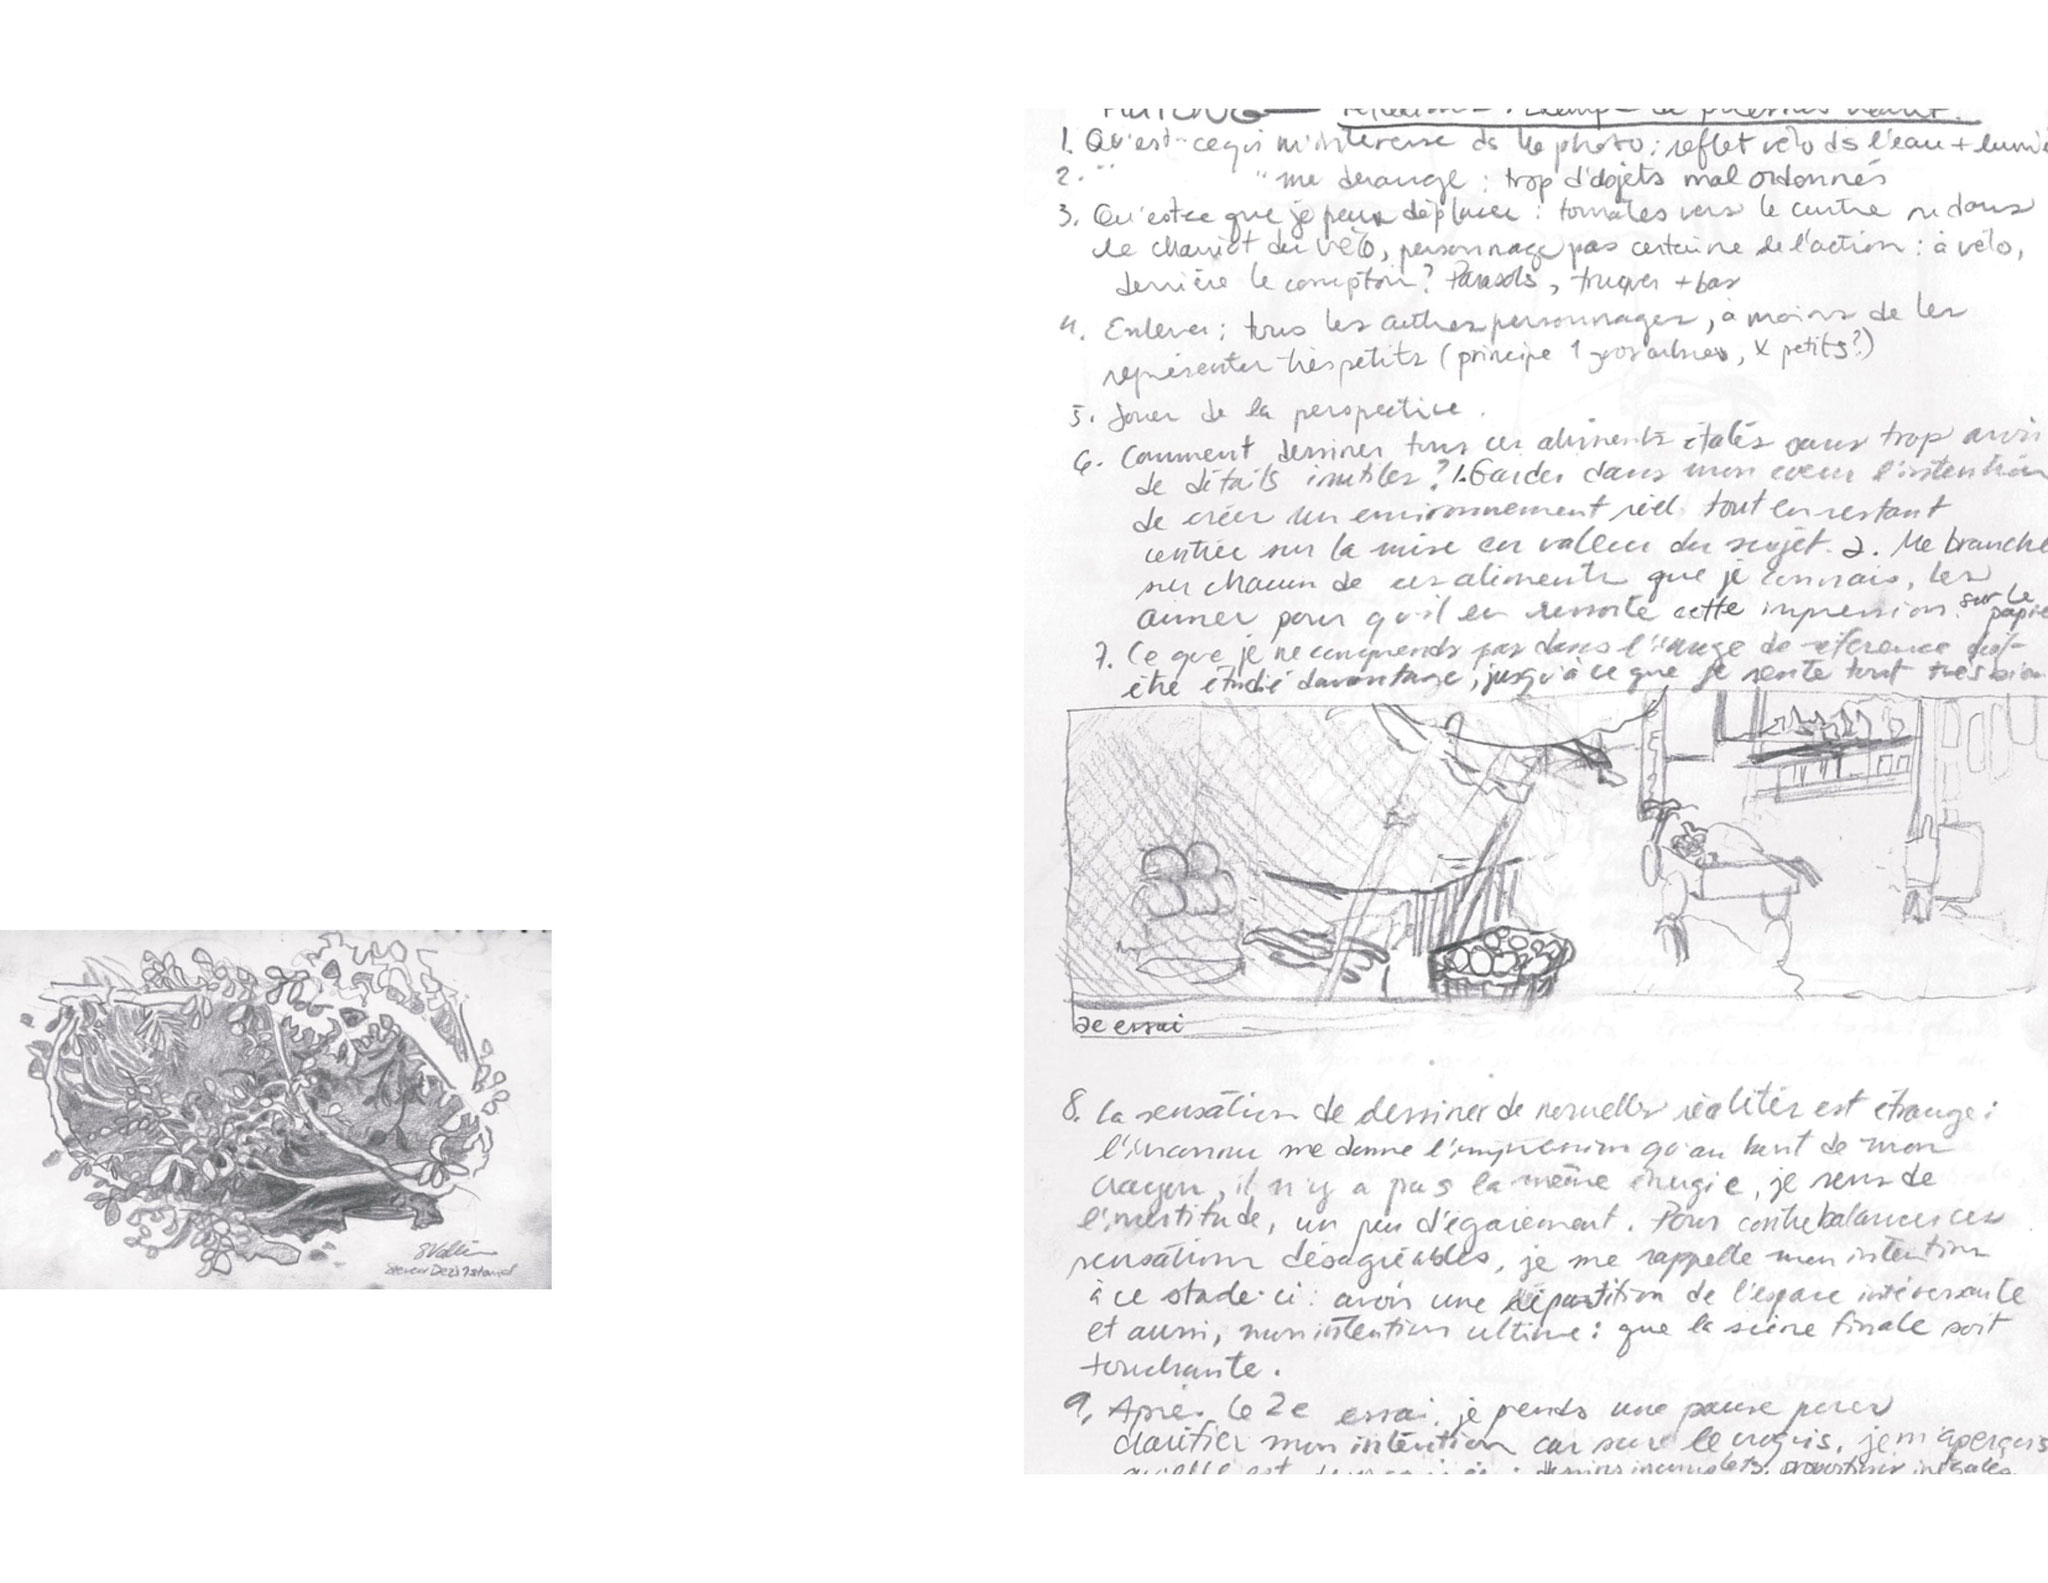 1. Qu'est-ce qui m'intéresse ds la photo : reflet vélo ds l'eau + lumiè
2. " " me dérange : trop d'objets mal ordonnés
3. Qu'est ce que je peux déplacer : tomates vers le centre ou dans
le chariot du vélo, personnage pas certaine de l'action : à vélo,
derrière le comptoir? Parasols, + bas
4. Enlever : tous les autres personnages, à moins de les
représenter très petits (principe 1 gros arbre, X petits?)
5. Jouer de la perspective.
6. Comment dessiner tous ces aliments étalés sans trop avoir
de détails inutiles? 1. Garder dans mon coeur l'intention
de créer un environnement réel tout en restant
centrée sur la mise en valeur du sujet. 2. Me branche
sur chacun de ces aliments que je connais, les
aimer pour qu'il en ressorte cette impression sur le papie
7. Ce que je ne comprends pas dans l'image de référence doit
être étudié davantage, jusqu'à ce que je sente tout très bien
2e essai
8. La sensation de dessiner de nouvelles réalités est étrange :
l'inconnu me donne l'impression qu'au bout de mon
crayon, il n'y a pas la même énergie, je sens de
l'incertitude, un peu d'égarement. Pour contrebalancer ces
sensations désagréables, je me rappelle mon intention
à ce stade-ci : avoir une répartition de l'espace intéressante
et aussi, mon intention ultime : que la scène finale soit
touchante.
9. Après le 2e essai, je prends une pause pour
clarifier mon intention car sur le croquis, je m'aperçois